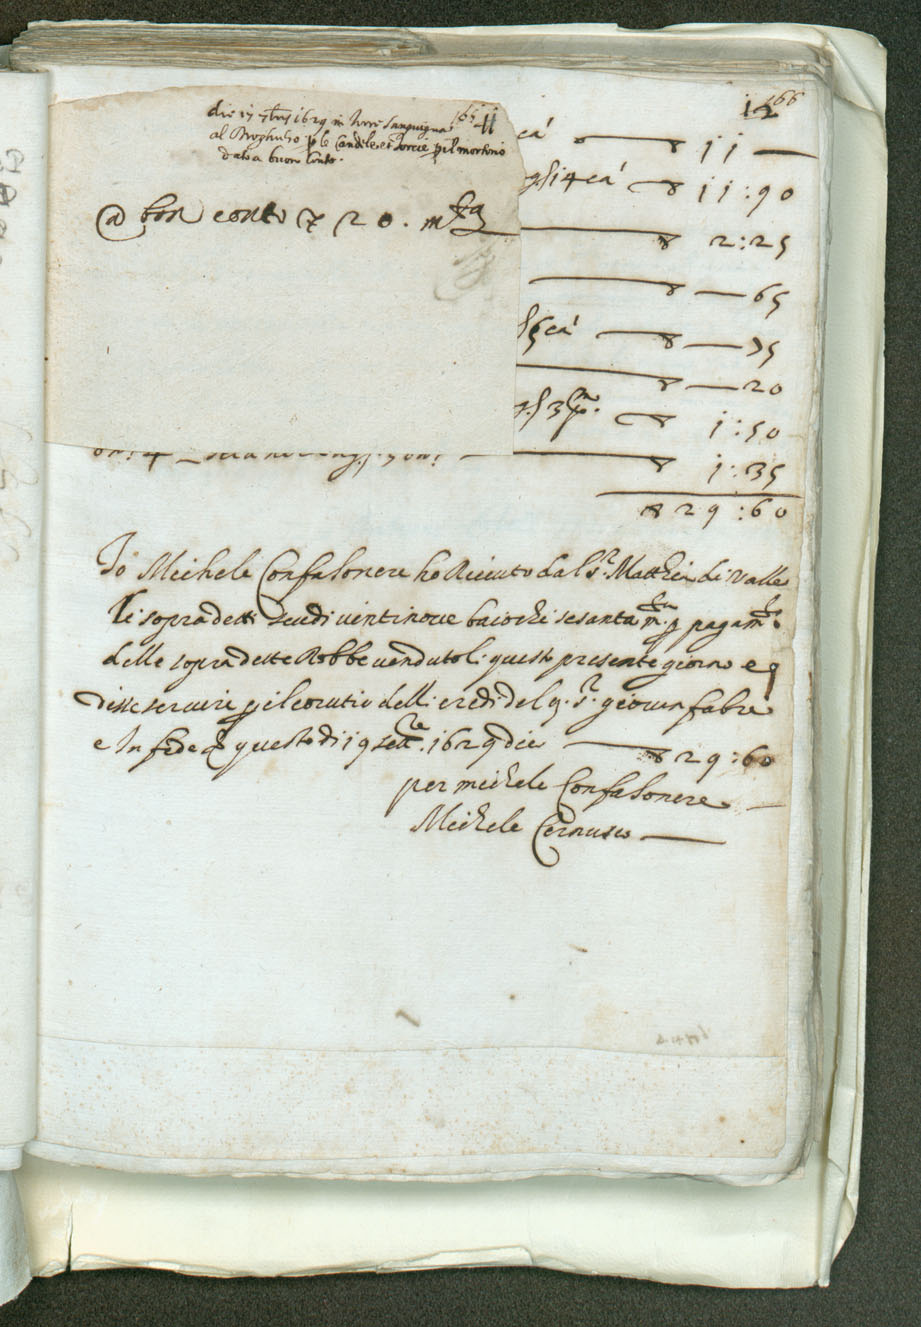 die 17 7bris 1629 in Torre Sanguigna 65 11
al Broghulio p le Candele et torcie p il mortorio
dato a buon Conto.
@ bon conto 20. mta
12 66
cá 11
14 cá 11:90
2:25
65
cá 75
20
1:50
1:35
29:60
Io Michele Confaloniere ho Riceuto dal Sr. Matthia di Valle
li sopra detti scudi uintinoue baiochi sesanta mta p pagamto
delle sopra dette Robbe uendutoli questo presente giorno e
disse seruire p il delli eredi del q. Sr. giouan fabre
e In fede q questo di 19 settre. 1629 dico 29:60
per michele Confaloniere
Michele Cernusco